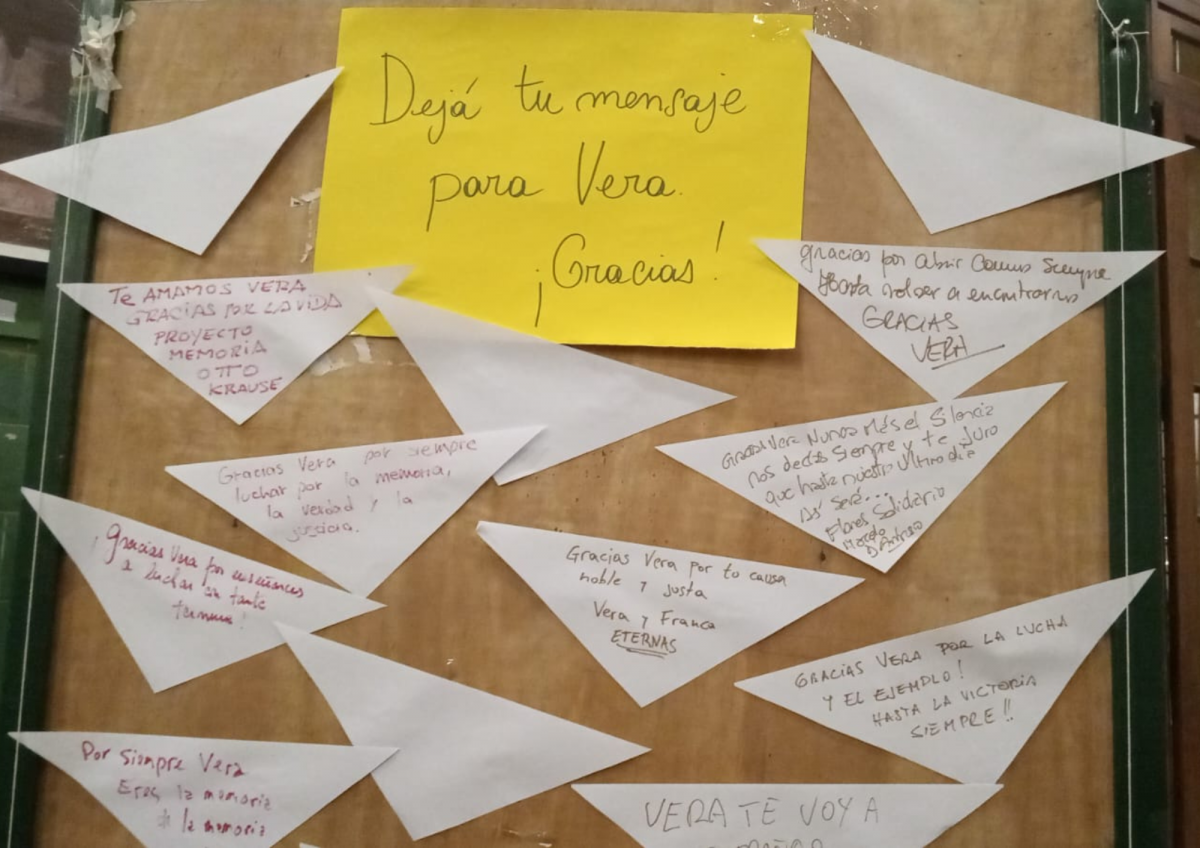 Dejá tu mensaje
para Vera.
¡Gracias!
Te AMAMOS VERA
GRACIAS POR LA VIDA
PROYECTO
MEMORIA
OTTO
KRAUSE
gracias por abrir Camino Siempre
Hasta volver a encontrarnos
GRACIAS
VERA
Gracias Vera por siempre
luchar por la memoria,
la verdad y la
justicia.
Gracias Vera Nunca Más el Silencio
nos decías Siempre y te Juro
que hasta nuestro último día
así será...
Flores Solidario
¡Gracias Vera por enseñarnos
a luchar con tanta
ternura!
Gracias Vera por tu causa
noble y justa
Vera y Franca
ETERNAS
GRACIAS VERA POR LA LUCHA
Y EL EJEMPLO!
HASTA LA VICTORIA
SIEMPRE!!
Por siempre Vera
Eras la memoria
de la memoria
VERA TE VOY A